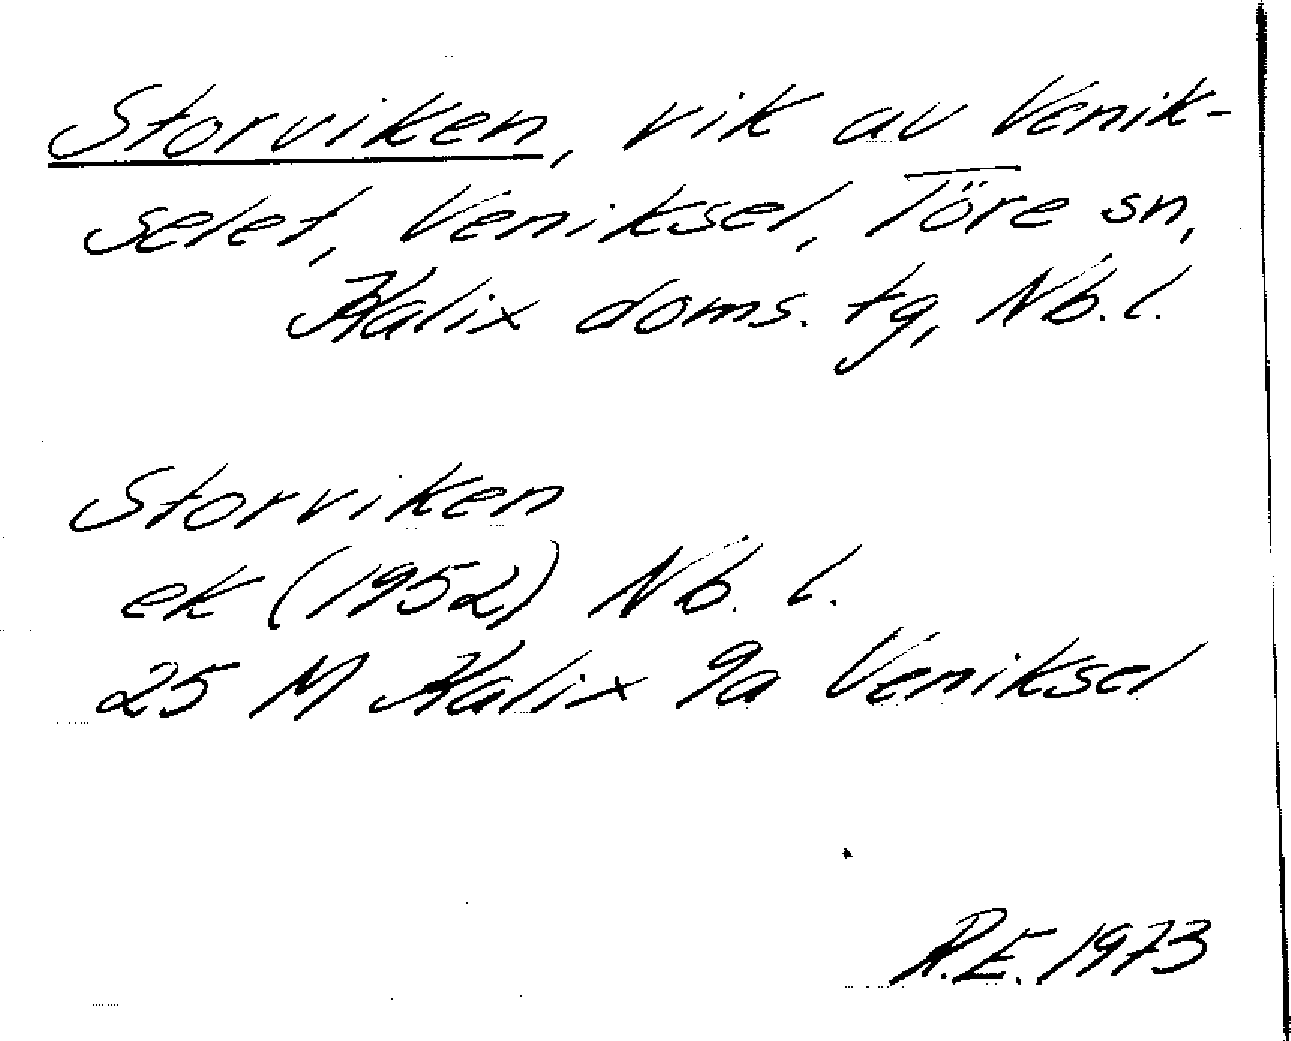 Storviken, vik av Venik-
selet, Veniksel, Töre sn,
Kalix doms. tg, Nb. l.
Storviken
ek (1952) Nb. l.
25 M Kalix 9a Veniksel
R.E. 1973